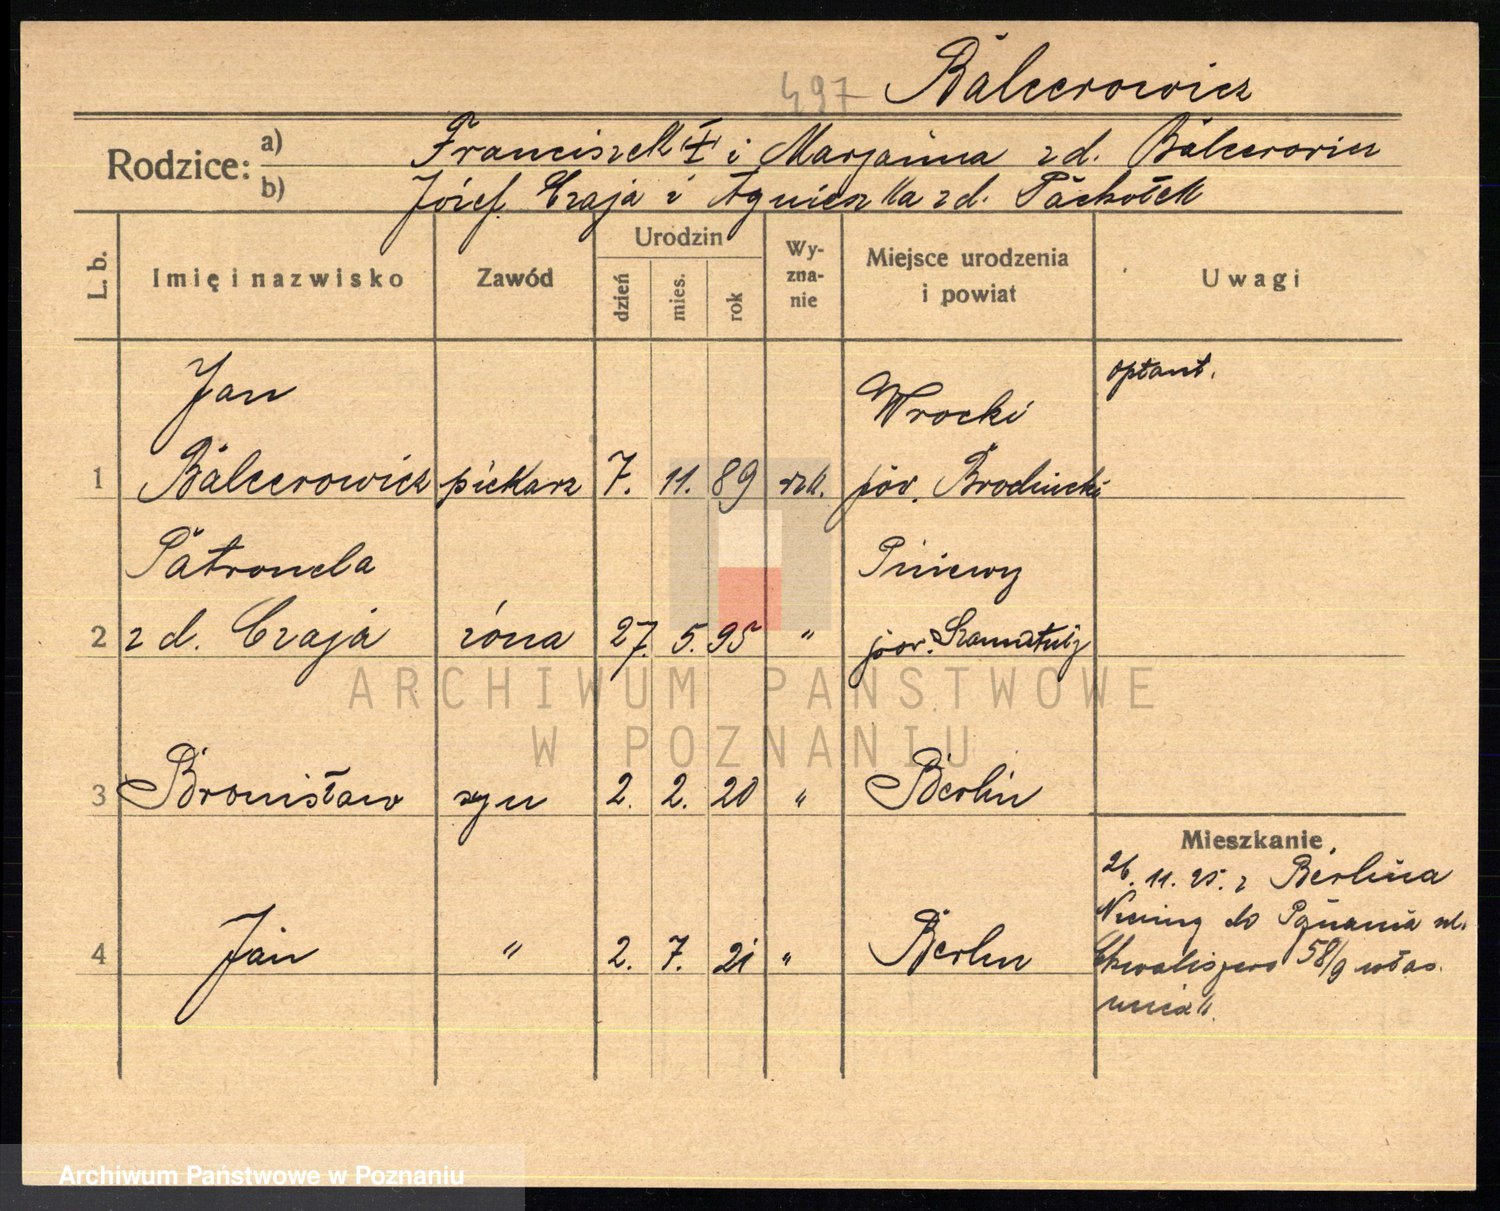 497 Balcerowicz
Rodzice:
a) Franciszek † i Marjanna zd. Balcerowicz
b) Józef Czaja i Agnieszka zd. Pachołek
L. b.
Imię i nazwisko
Zawód
Urodzin
dzień
mies.
rok
Wy-
zna-
nie
Miejsce urodzenia
i powiat
Uwagi
Jan Wrocki optant.
1 Balcerowicz piekarz 7. 11. 89 rzk. pow. Brodnicki
Patronela Pniewy
2 zd. Czaja żona 27. 5. 95 " pow. Szamotuły
3 Bronisław syn 2. 2. 20 " Berlin
Mieszkanie
26. 11. 25. z Berlina
do Poznania ul.
4 Jan " 2. 7. 21 " Berlin
Chwaliszewo 58/9
ARCHIWUM PAŃSTWOWE
W POZNANIU
Archiwum Państwowe w Poznaniu